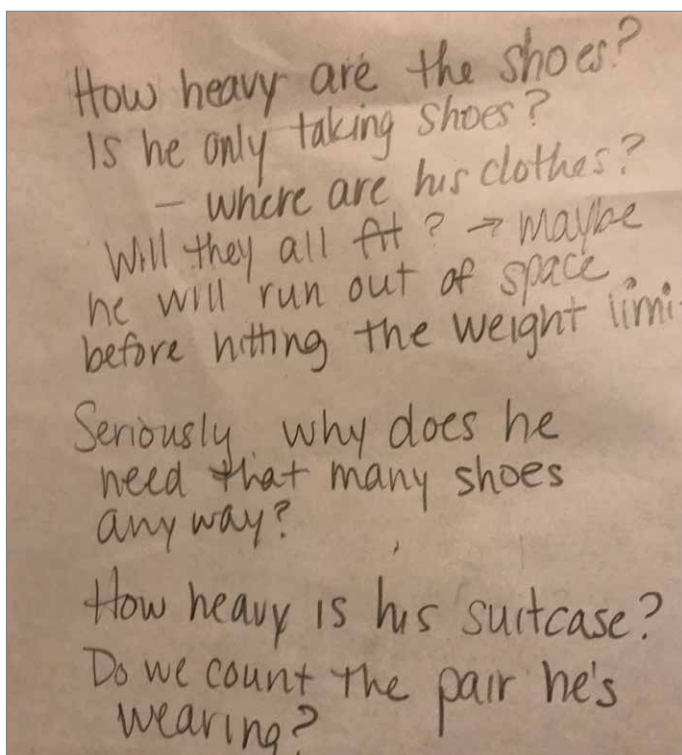 How heavy are the shoes?
Is he only taking shoes?
- where are his clothes?
Will they all fit? → maybe
he will run out of space
before hitting the weight limi
Seriously why does he
need that many shoes
anyway?
How heavy is his suitcase?
Do we count the pair he's
wearing?